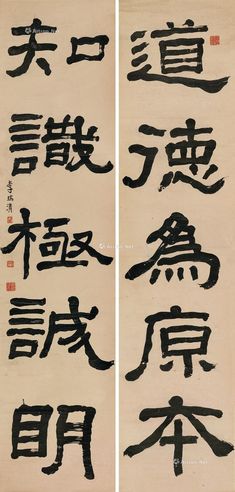 道德為原本
知識極誠明
李瑞清